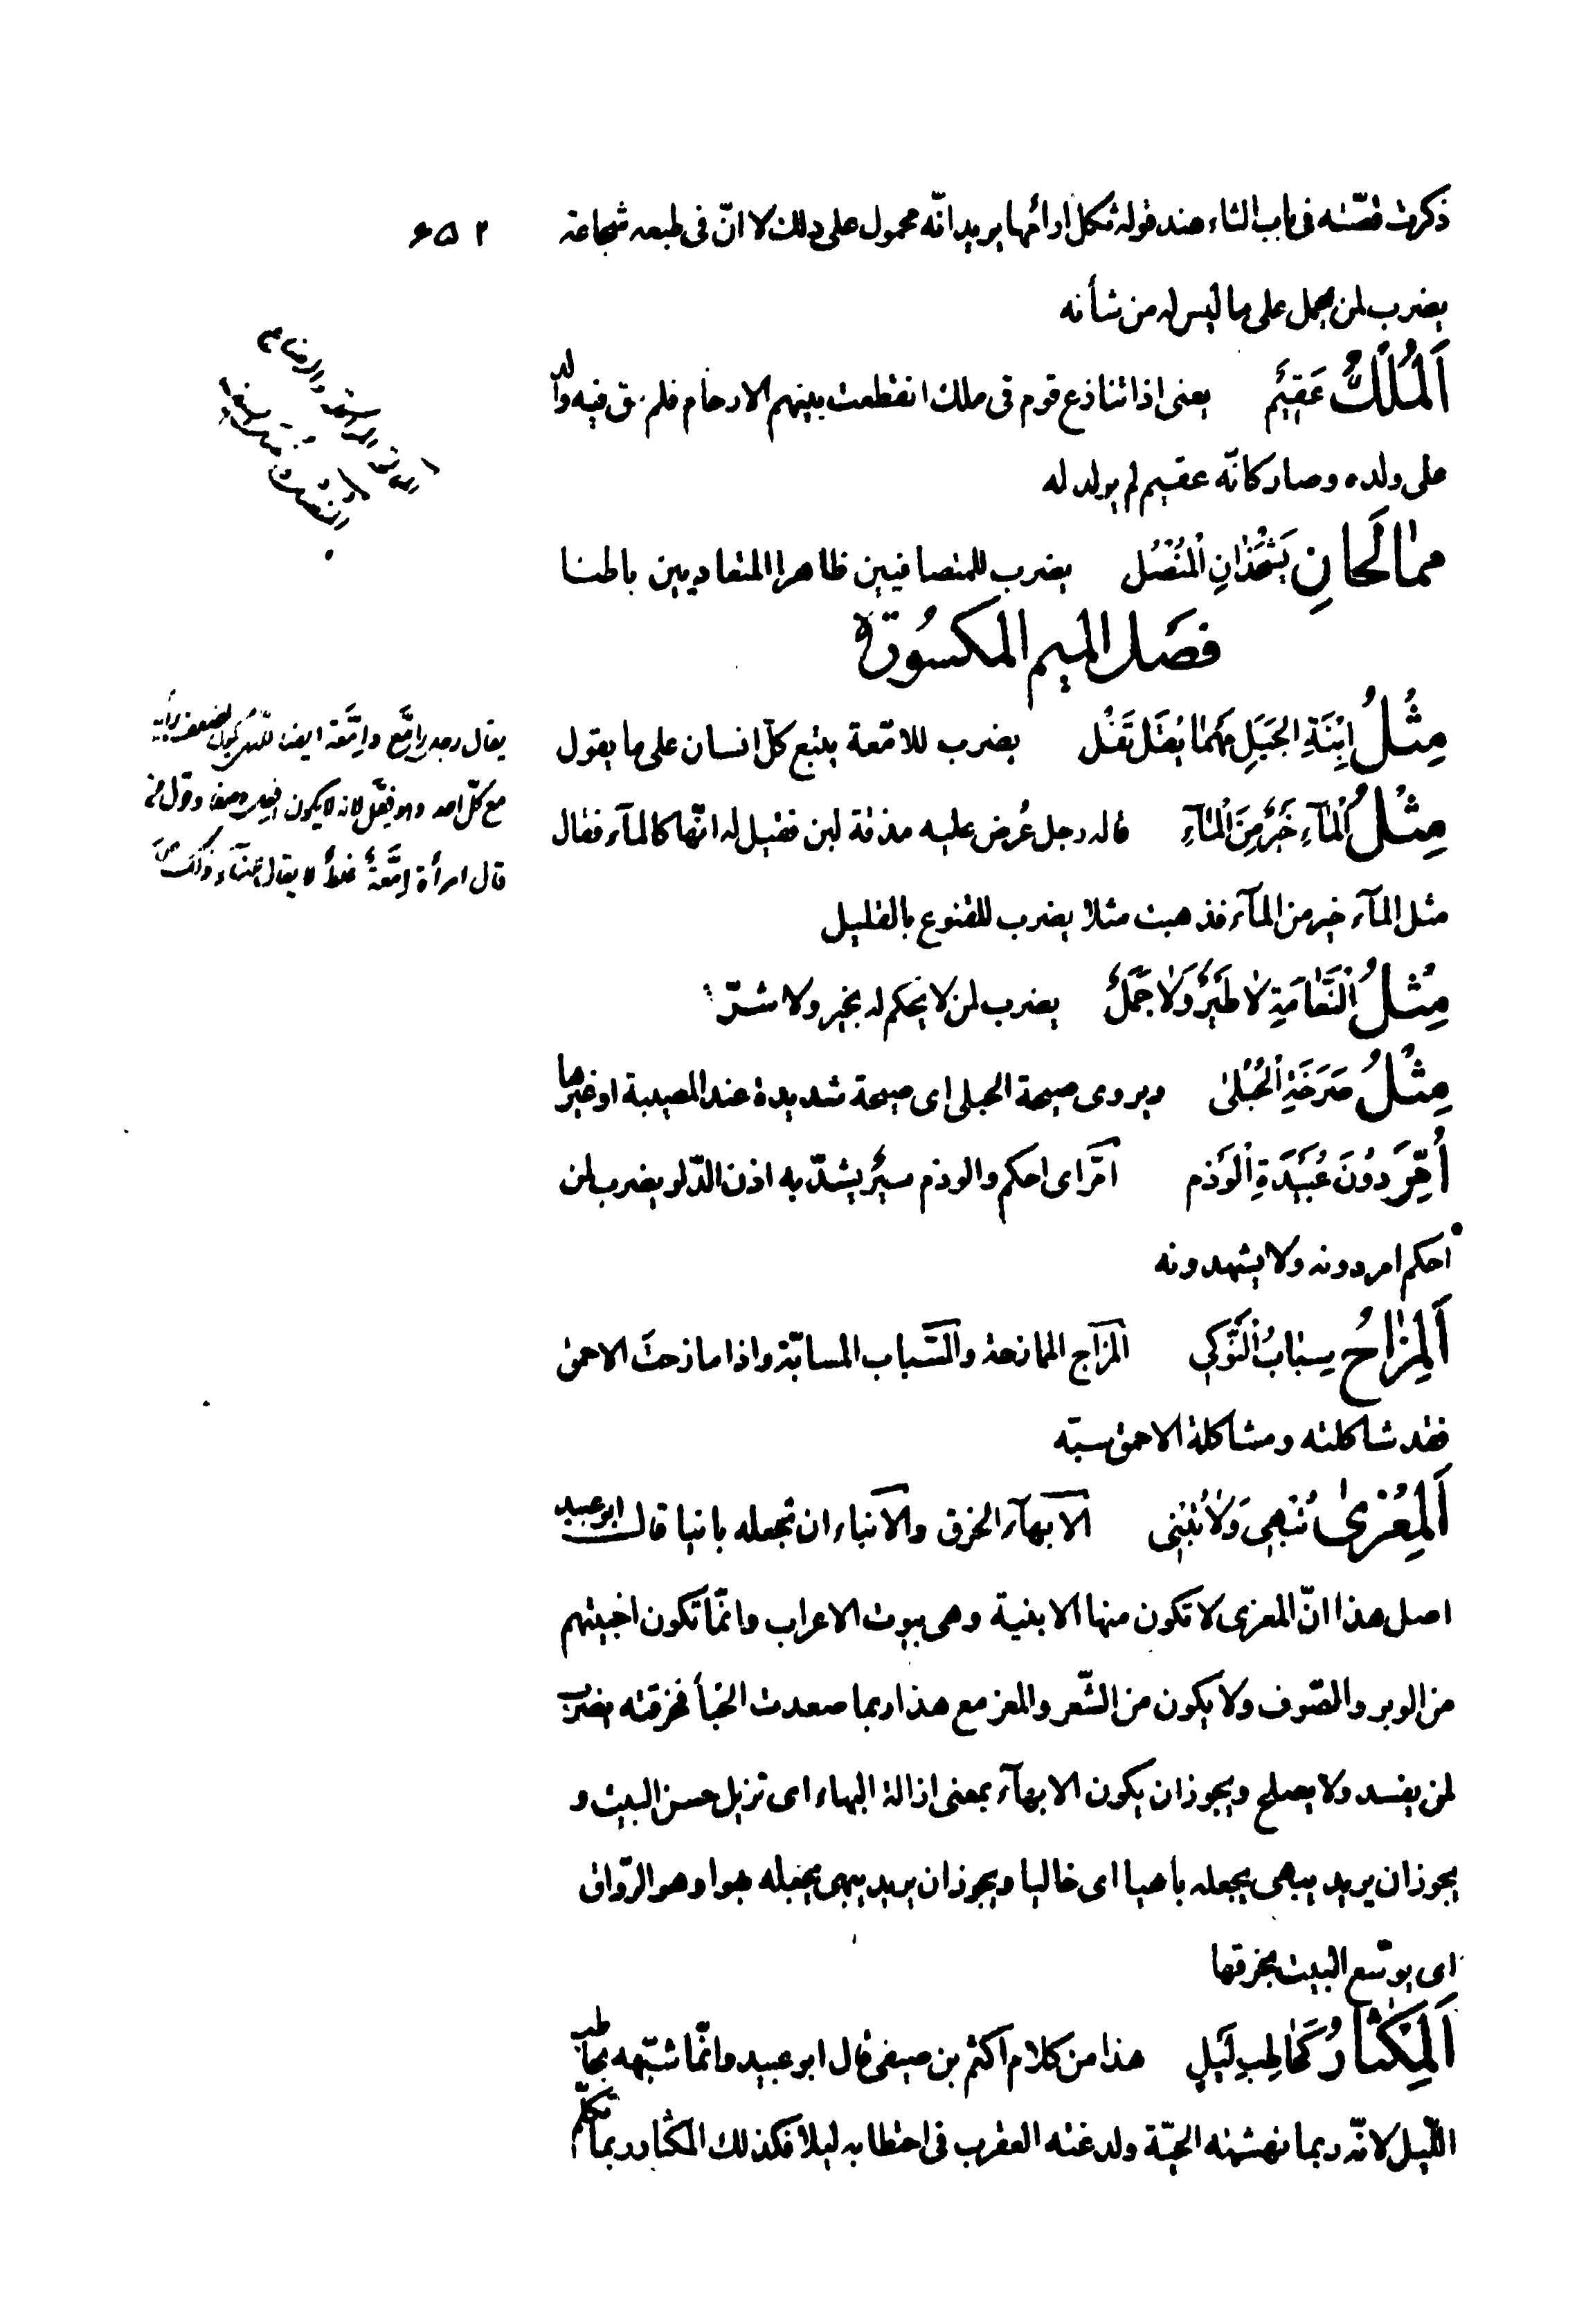 ذكرت قصّته فى باب الثاء عند قوله ثكل ارأمها يريد انّه محمول على ذلك لا انّ فى طبعه شجاعة
۶۵۲
يضرب لمن يحمل على ما ليس له من شأنه
اَلْمُلْكُ عَقِيْمٌ يعنى اذا تنازع قوم فى ملك انقطعت بينهم الارحام فلم يبق فيه والد
على ولده وصار كانّه عقيم لم يولد له
ممالحان يَشْحَذَانِ الْمُنْصُل يضرب للمتصافيين ظاهرا المتعاديين باطنا
فصل الميم المكسورة
مِثْلُ اِبْنَةِ الجَبَلِ مَهْمَا يُقَلْ تَقُلْ يضرب للامّعة يتبع كلّ انسان على ما يقول
مِثْلُ الْمَآءِ خَيْرٌ مِنَ الْمَآءِ قاله رجل عُرض عليه مذقة لبن فقيل له انّها كالمآء فقال
مثل المآء خير من المآء فذهبت مثلا يضرب للقنوع بالقليل
مِثْلُ النَّعَامَةِ لَا طَيْرٌ وَلَا جَمَلٌ يضرب لمن لا يحكم له بخير ولا شرّ
مِثْلُ صَرْخَةِ الْحُبْلىٰ ويروى صيحة الحبلى اى صيحة شديدة عند المصيبة او غيرها
أُمِرَّ دُوْنَ عُبَيْدَةِ الْوَذَم امّر اى احكم والوذم سيرٌ يشدّ به اذن الدّلو يضرب لمن
احكم امر دونه ولا يشهدونه
اَلْمِزَاحُ سِبَابُ النَّوْكَى المزاح الممازحة والسّباب المسابّة واذا مازحت الاحمق
فقد شاكلته ومشاكلة الاحمق سبّة
اَلْمِعْزىٰ تُبْهِى وَلَا تُبْنِى الابهآء الخرق والابناء ان تجعله بانيا قال ابو عبيد
اصل هذا انّ المعزى لا تكون منها الابنية وهى بيوت الاعراب وانّما تكون اخبيتهم
من الوبر والصّوف ولا يكون من الشّعر والمعز مع هذا ربما صعدت الخبأ فخرقته يضرب
لمن يفسد ولا يصلح ويجوز ان يكون الابهآء بمعنى ازالة البهاء اى تزيل حسن البيت و
يجوز ان يريد يبهى يجعله باهيا اى خاليا ويجوز ان يريد يبهى يجعله بهوا وهو الرّواق
اى يوسّع البيت بخرقها
اَلْمِكْثَارُ كَحَاطِبِ لَيْلٍ هذا من كلام اكثم بن صيفى قال ابو عبيد وانّما شبّهه بحاطب
اللّيل لانّه ربما نهشته الحيّة ولدغته العقرب فى احتطابه ليلا فكذلك المكثار ربما تكلّم
يقال رجل اِمَّع واِمَّعة ايضا للّذى يكون لضعف رأيه
مع كلّ احد وهو فِعَّل لانه لا يكون افعل وصفا وقول من
قال امرأة اِمَّعةٌ غلطٌ لا يقال للنساء ذلك